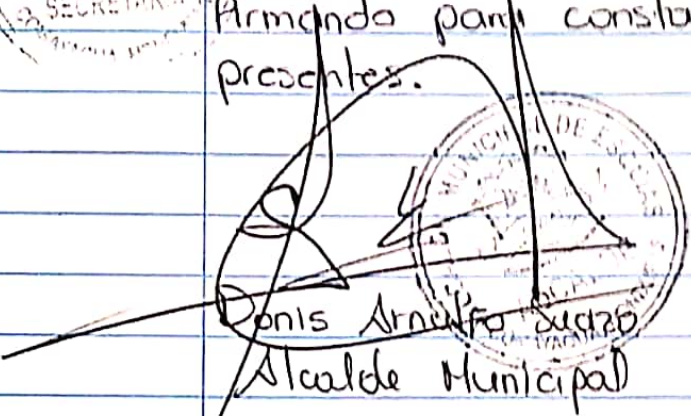 SECRETARIA
Armando para consta
presentes.
MUNICIPAL DE
Donis Arnulfo Suazo
Alcalde Municipal